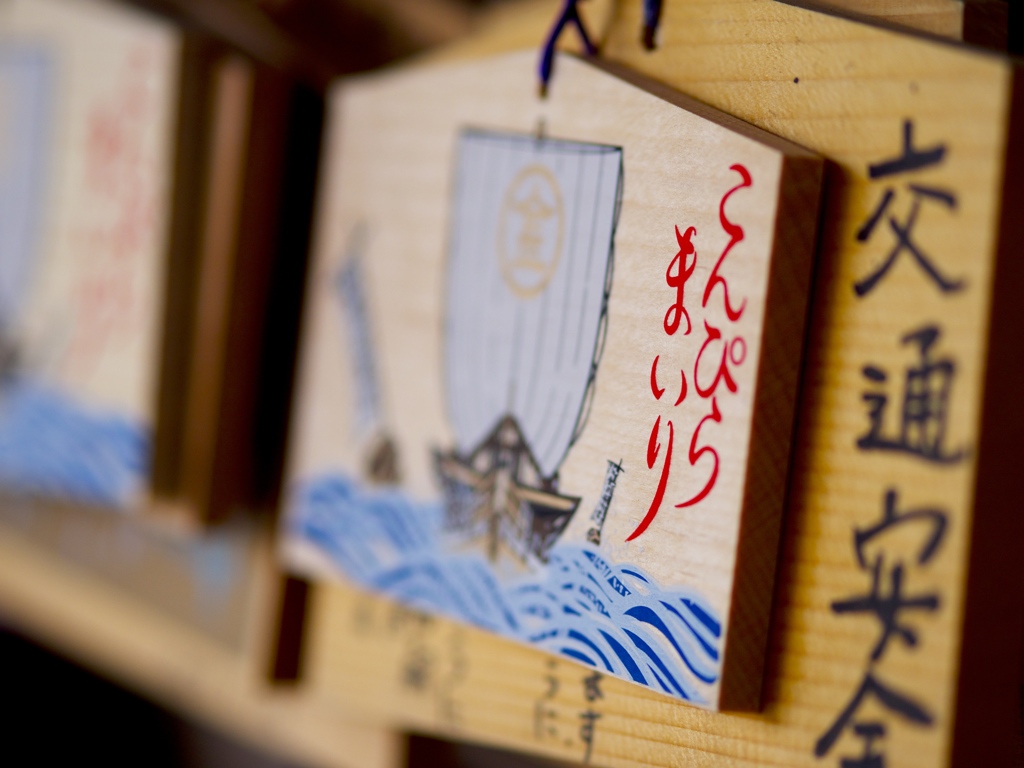 交通安全
こんぴら
まいり
金